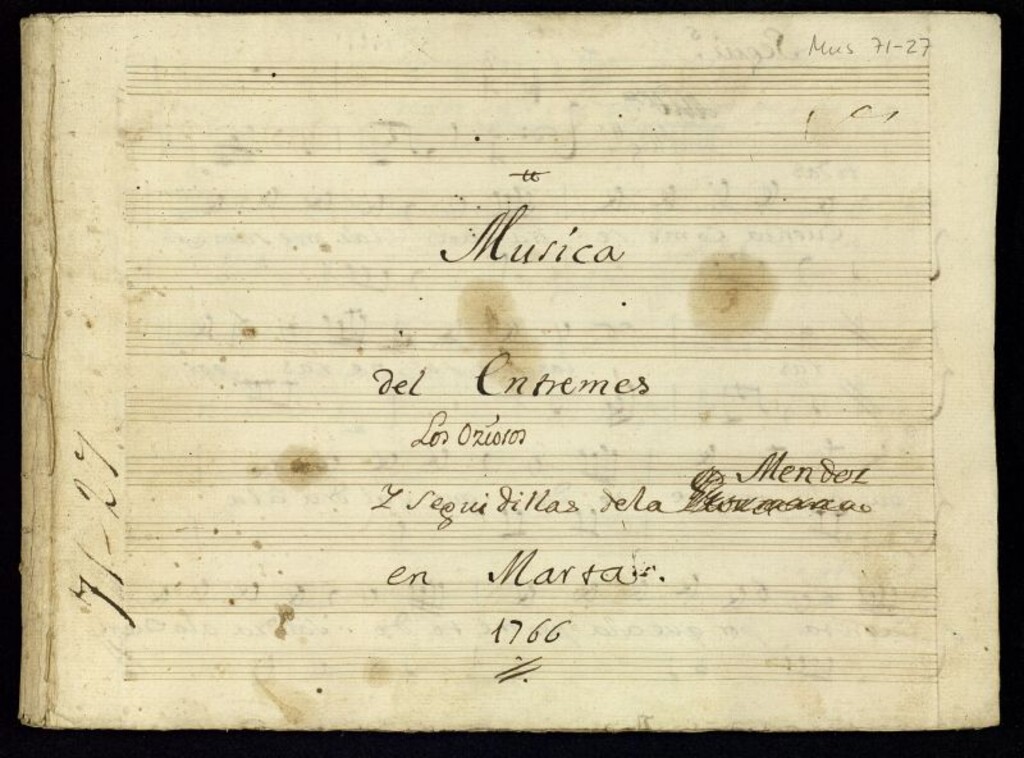 Mus 71-27
Musica
del Entremes
Los Oziosos
Mendez
Y seguidillas dela
en Marta
1766
71-27